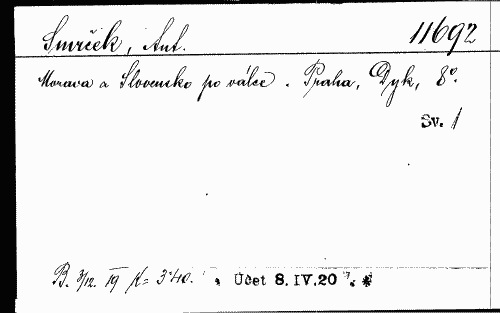 Smrček, Ant. 11692
Morava a Slovensko po válce. Praha, Dyk, 8°.
Sv. 1
B. 3/12. 19 K= 3·40. Účet 8.IV.20